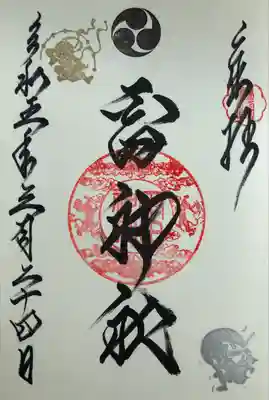 奉拝
雷神社
令和五年三月二十四日